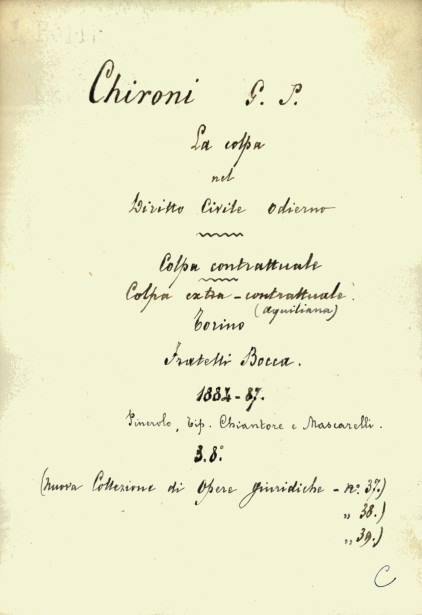 Chironi G. P.
La colpa
nel
Diritto Civile odierno
Colpa contrattuale
Colpa extra-contrattuale.
(aquiliana)
Torino
Fratelli Bocca.
1884-87.
Pinerolo, Tip. Chiantore e Mascarelli.
3.8°
(Nuova Collezione di Opere giuridiche - n.° 37.)
" 38.)
" 39.)
C